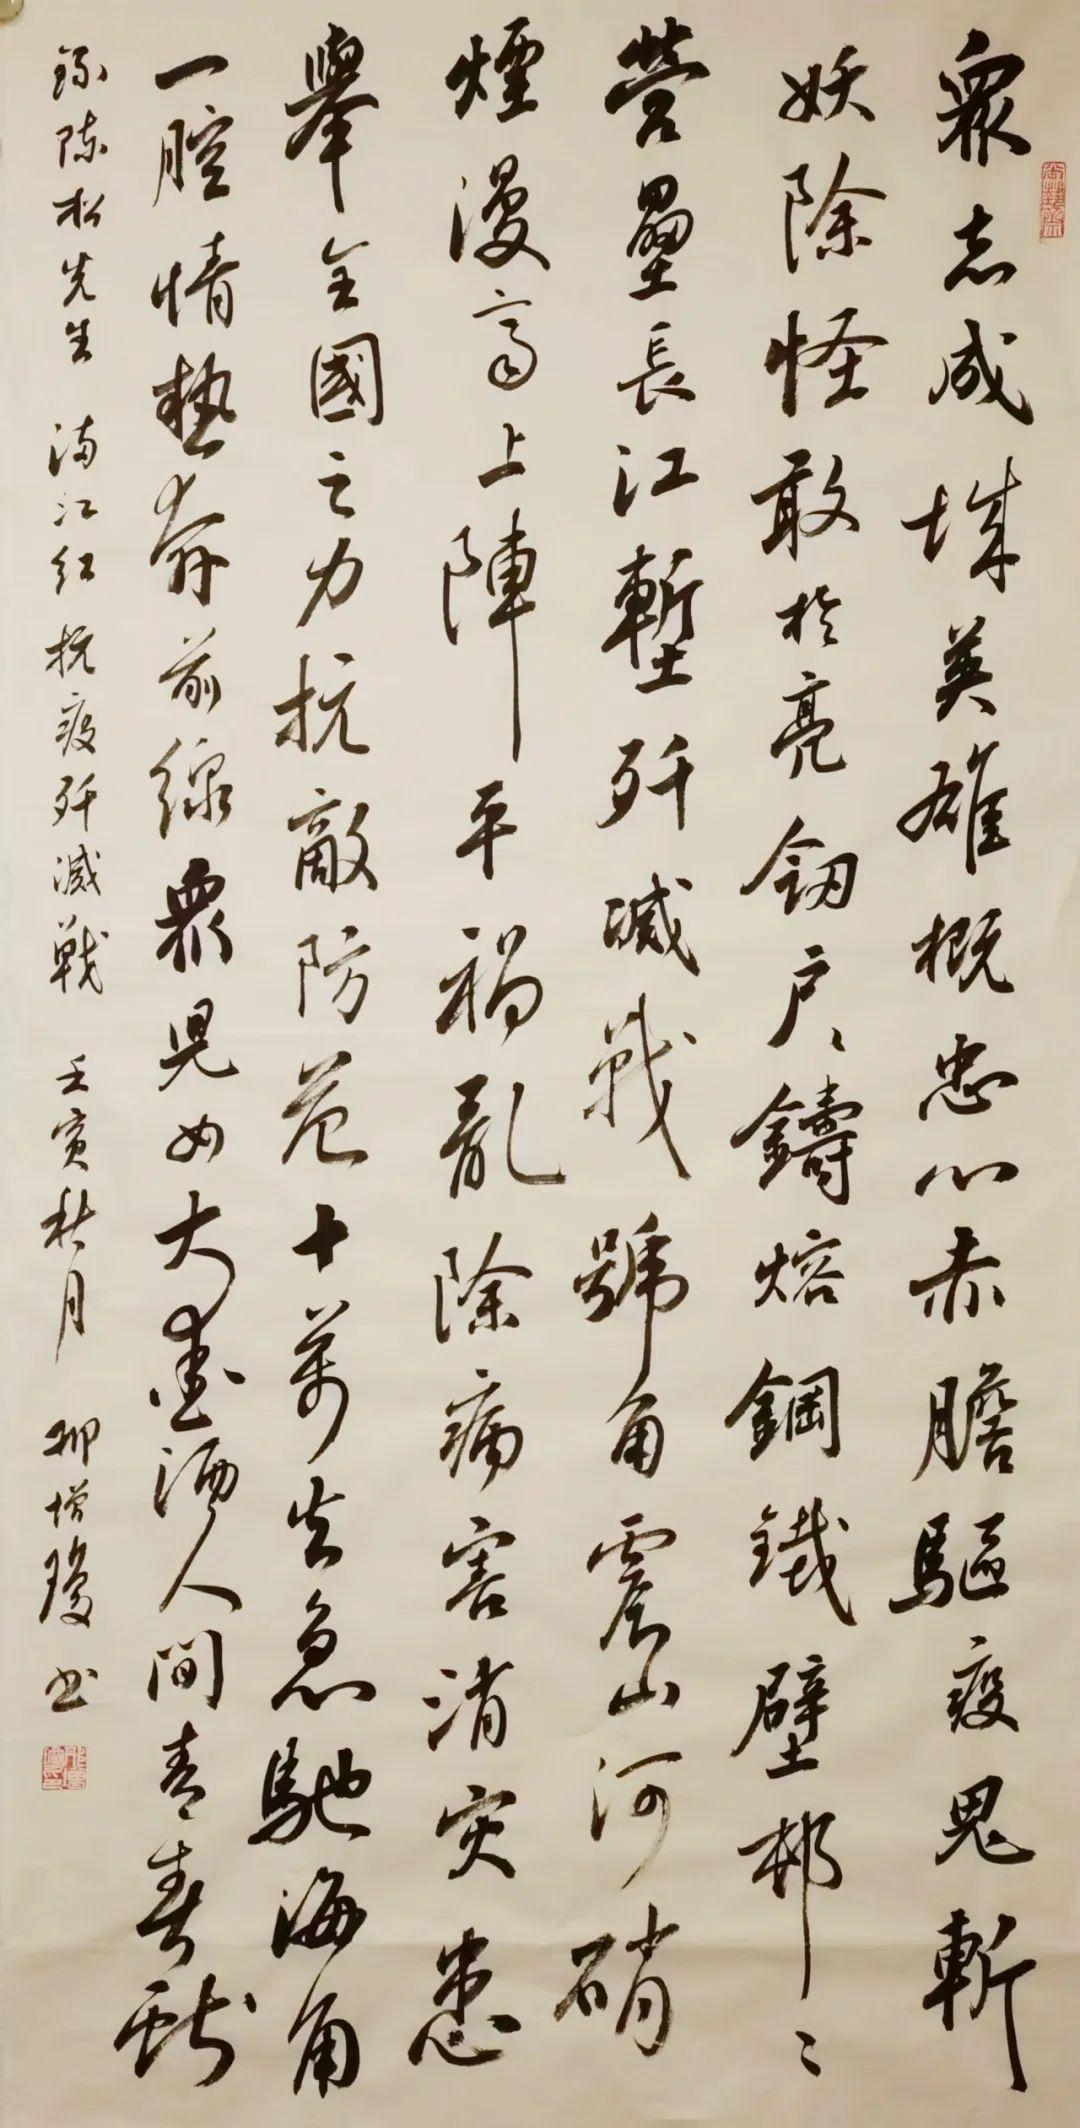 眾志成城英雄概忠心赤膽驅疫鬼斬
妖除怪敢於亮劒戶〻鑄熔鋼鐵壁邨〻
營壘長江塹歼滅戰號角震山河硝
煙漫高上陣平禍亂除病害消灾患
舉全國之力抗敵防范十萬火急馳海角
一腔情墊奔前線眾児女大愛洒人間青春献
錄陈松先生 满江红 抗疫歼滅戰 壬寅秋月 柳增瓊书